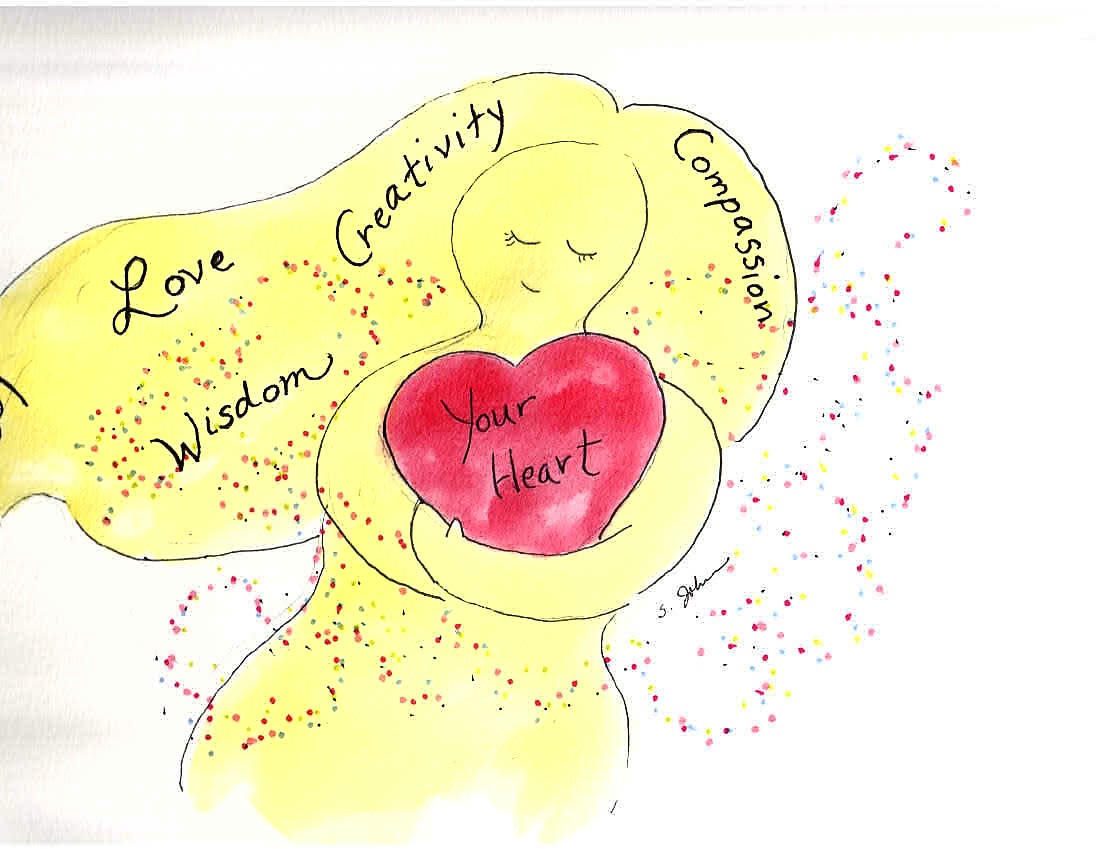 Creativity
Compassion
Love
Wisdom
Your
Heart
S. John